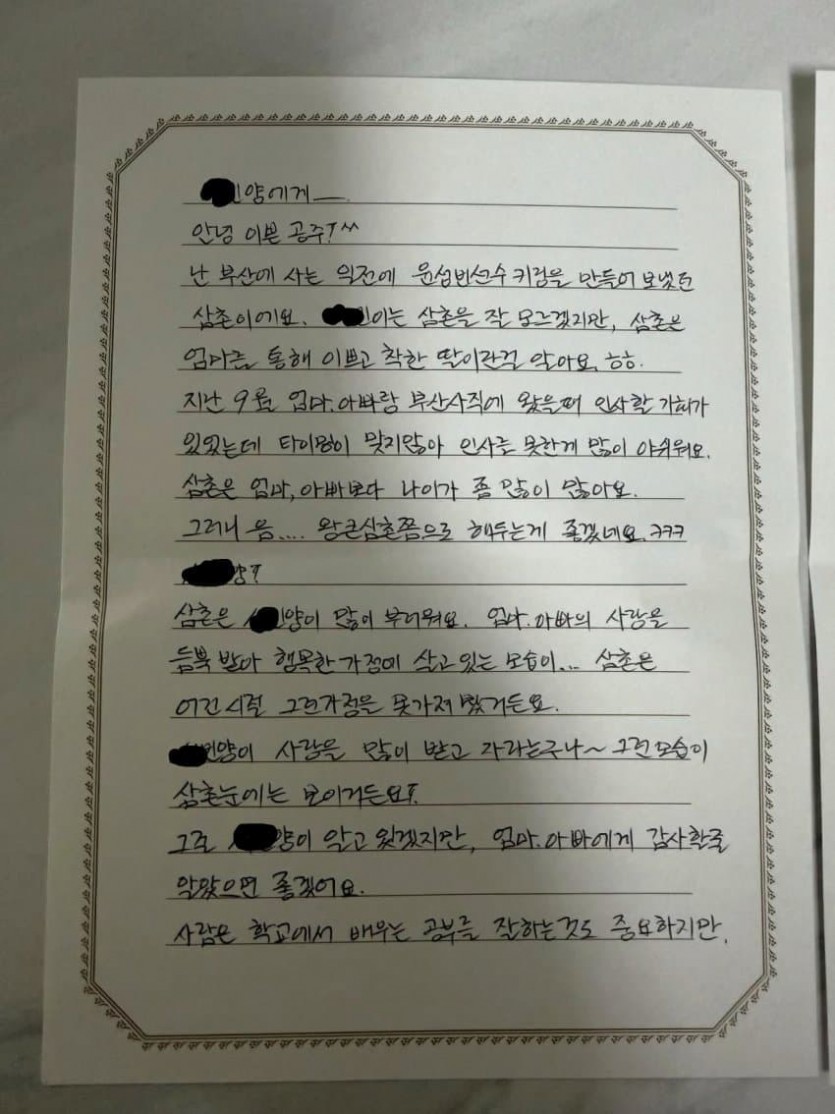 양에게 ㅡ.
안녕 이쁜 공주! ^^
난 부산에 사는 일전에 윤성빈선수 키링을 만들어 보냈던
삼촌이에요. 이는 삼촌을 잘 모르겠지만, 삼촌은
엄마를 통해 이쁘고 착한 딸이란걸 알아요. ㅎㅎ.
지난 9월 엄마.아빠랑 부산사직에 왔을때 인사할 기회가
있었는데 타이밍이 맞지않아 인사를 못한게 많이 아쉬워요.
삼촌은 엄마, 아빠보다 나이가 좀 많이 많아요.
그러니 음.... 왕큰삼촌쯤으로 해두는게 좋겠네요. ㅋㅋㅋ
양!
삼촌은 양이 많이 부러워요. 엄마.아빠의 사랑을
듬뿍 받아 행복한 가정에 살고 있는 모습이... 삼촌은
어린시절 그런가정을 못가져 봤거든요.
민양이 사랑을 많이 받고 자라는구나~ 그런모습이
삼촌눈에는 보이거든요!
그로 양이 알고 있겠지만, 엄마.아빠에게 감사할줄
알았으면 좋겠어요.
사람은 학교에서 배우는 공부를 잘하는것도 중요하지만,